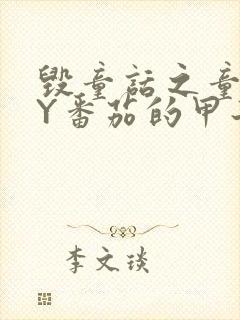 毁童话之童
Y番茄的甲
李文琰